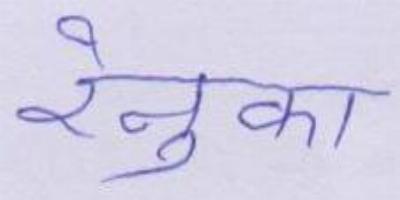 रेनुका